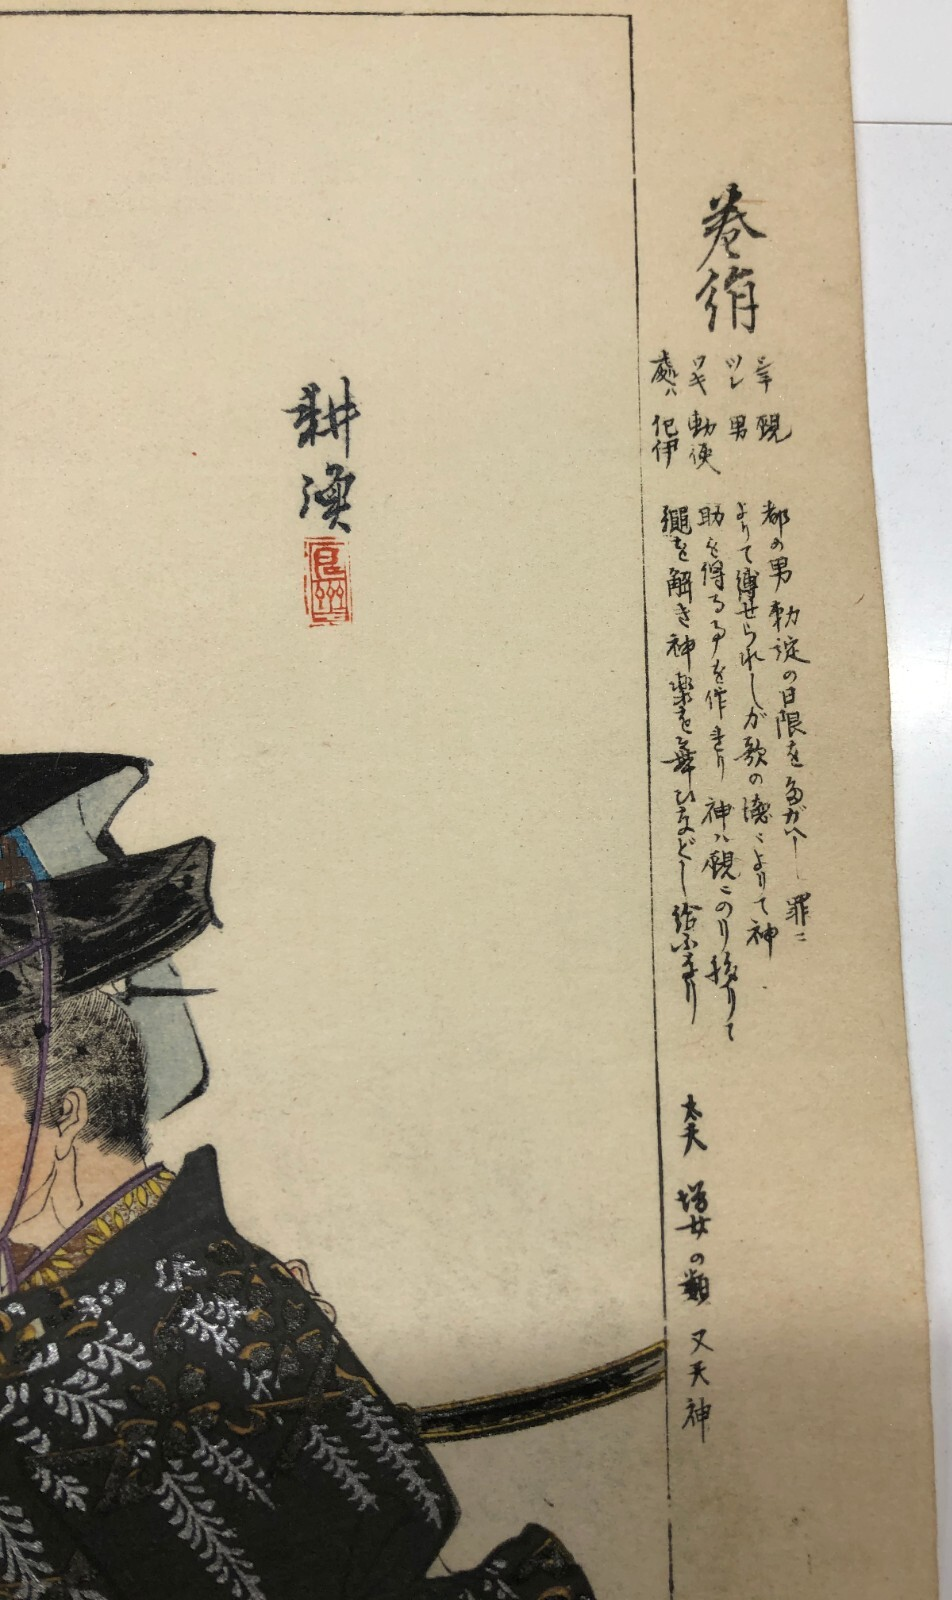 巻絹
シテ 覡
ツレ 男
ワキ 勅使
處ハ 紀伊
都の男勅諚の日限をたがへし罪ニ
よりて縛せられしが歌の徳ニよりて神
助を得る事を作れり 神ハ覡ニのり移りて
縄を解き神楽を舞ひなどし給ふなり
太夫 増女の類 又天神
耕漁